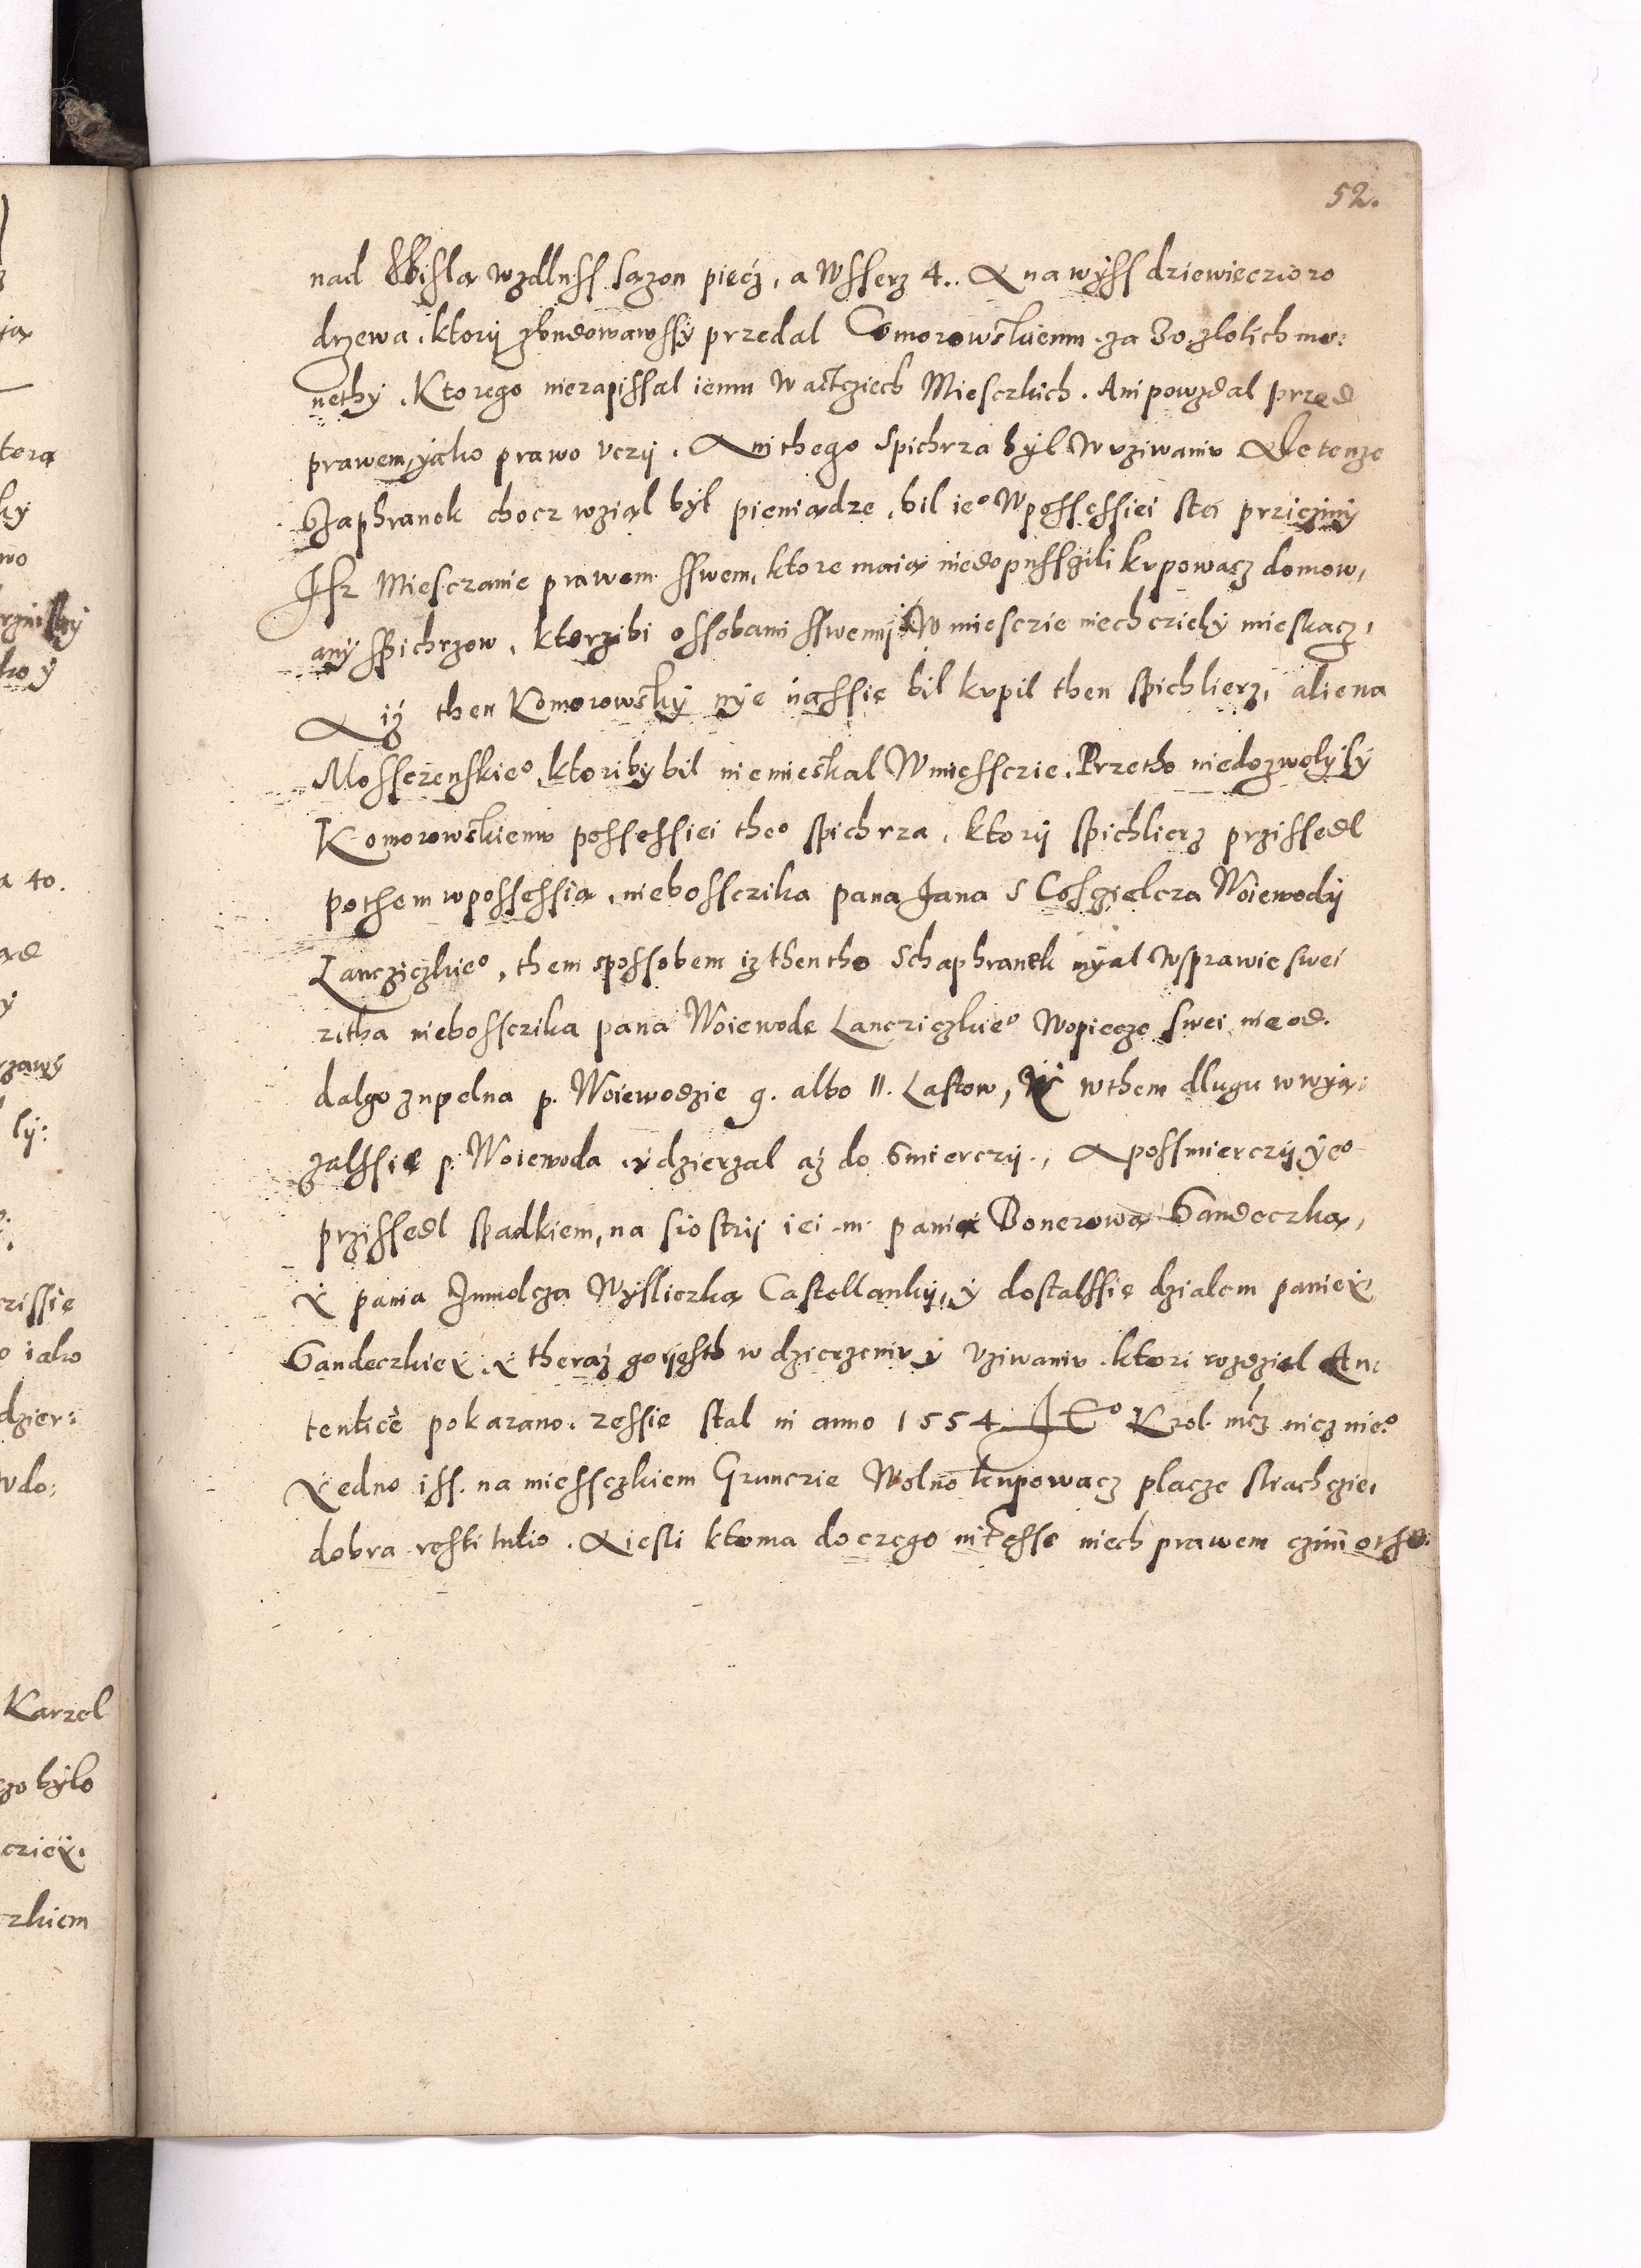 52.
nad Wisla wzdlussz sązon pięcz, a Wsserz 4.. A na wyss dziewieczioro
drzewa. ktory zbudowawssy przedal Comorowskiemu. za 30. zlotich mo:
nethy. Ktorego niezapissal iemu w acticziech Miesczkich. Ani powzdal przed
prawem, yako prawo uczy. Ani thego Spichrza był w uziwaniu Ale tenze
Szaphranek chocz wziął był pieniądze, bil ieº w possessiei sta przicziny
Isz Miesczanie prawem sswem, ktore maią niedopusscili kupowacz domow,
any sspichrzow, ktorzibi ossobami sswemi W miescie niechcziely mieskacz,
A iż then Komorowsky nye na ssię bil kupil then spichlierz, ali e na
Mossczenskieº. ktoriby bil niemieskal W miessczie. Przetho niedozwolyly
Komorowskiemu possessiei theº spichrza. ktory spichlierz przissedl
pothem w possessią, nieboszczika pana Jana S Cosczielcza Woiewody
Lancziczkieº, them spossobem iz thentho Schaphranek myal w sprawie swei
zitha nieboszczika pana Woiewode Lancziczkieº w opiecze swei, nie od.
dal go zupelna p. Woiewodzie 9. albo 11. Lastow, Y w them dlugu w wyą:
zalssię p. Woiewoda. y dzierzal aż do smierczy., A possmierczy yeº
przissedl spadkiem, na siostry iei m. panią Bonerową Sandeczką,
Y panią Jnnolczą Wysliczką Castellanky, y dostalssie dzialem paniey
Sandeczkiey. y theraz go iesth w dzierzeniu y uziwaniu. ktori rozdzial Au:
tentice pokazano. ze ssie stal in anno 1554. J Eº Krol. mcz nicz nieº
Yedno iss. na miessczkiem Gruncie Wolno kupowacz placze sliachczie,
dobra restitutio. A iesli kto ma do czego niech prawem czini